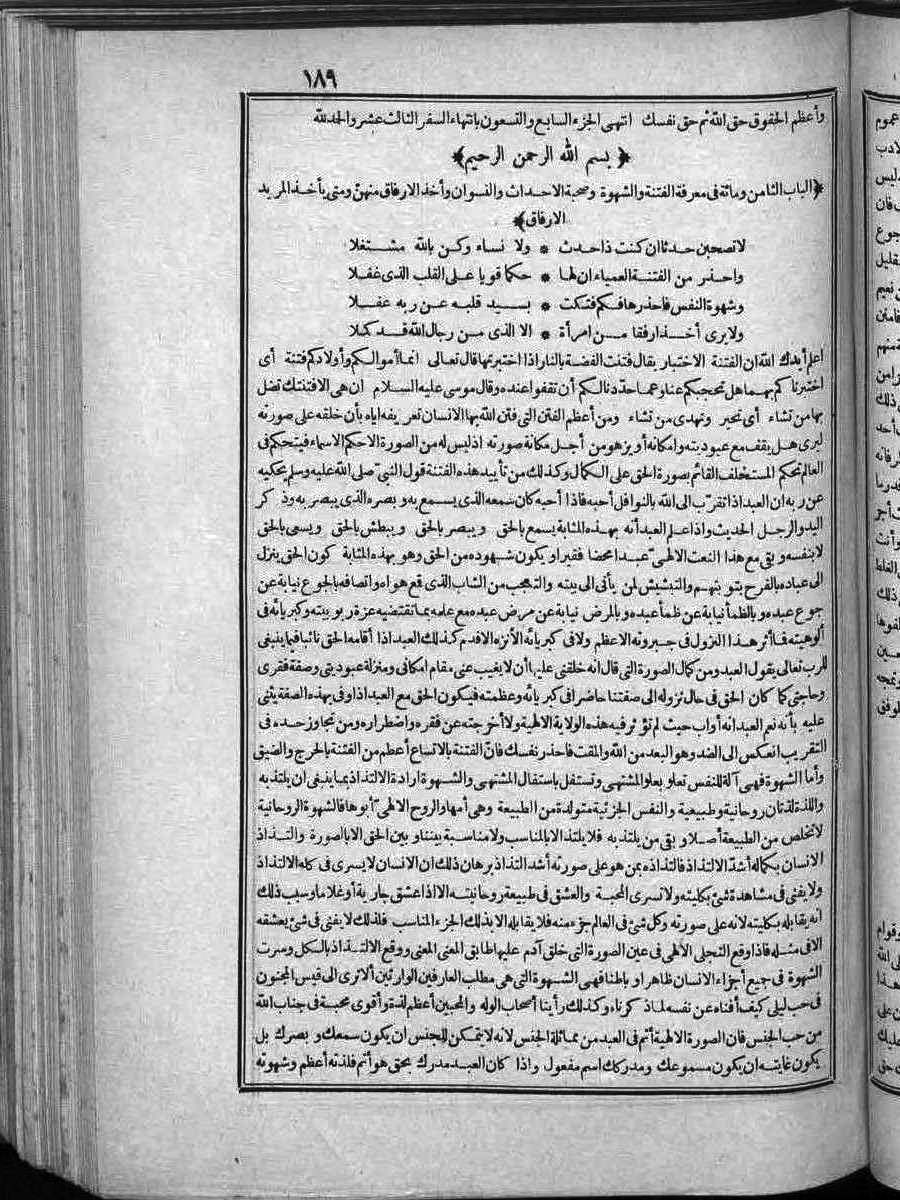 ١٨٩
وأعظم الحقوق حق الله ثم حق نفسك انتهى الجزء السابع والتسعون بانتهاء السفر الثالث عشر والحمد لله
﴿بسم الله الرحمن الرحيم﴾
﴿الباب الثامن ومائة فى معرفة الفتنة والشهوة وصحبة الاحداث والنسوان وأخذ الارفاق منهن ومتى يأخذ المريد
الارفاق﴾
لاتصحبن حدثا ان كنت ذا حدث * ولا نساء وكن بالله مشتغلا
واحذر من الفتنة العمياء ان لها * حكما قويا على القلب الذى غفلا
وشهوة النفس فاحذرها فكم فتكت * بسيد قلبه عن ربه عفلا
ولا يرى أخذ ارفقا من امرأة * الا الذى من رجال الله قد كملا
اعلم أيدك الله ان الفتنة الاختبار يقال فتنت الفضة بالنار اذا اختبرتها قال تعالى انما أموالكم وأولادكم فتنة أى
اختبرناكم بهما هل تحجبكم عنا وعما حددنا لكم أن تقفوا عنده وقال موسى عليه السلام ان هى الا فتنتك تضل
بها من تشاء أى تحير وتهدى من تشاء ومن أعظم الفتن التى فتن الله بها الانسان تعريفه اياه بأن خلقه على صورته
ليرى هل يقف مع عبوديته وامكانه أو يزهو من أجل مكانة صورته اذ ليس له من الصورة الا حكم الاسماء فيتحكم فى
العالم تحكم المستخلف القائم بصورة الحق على الكمال وكذلك من تأييد هذه الفتنة قول النبى صلى الله عليه وسلم يحكيه
عن ربه ان العبد اذا تقرب الى الله بالنوافل أحبه فاذا أحبه كان سمعه الذى يسمع به وبصره الذى يبصر به وذكر
اليد والرجل الحديث واذا علم العبد أنه بهذه المثابة يسمع بالحق ويبصر بالحق ويبطش بالحق ويسعى بالحق
لا بنفسه وبقى مع هذا النعت الالهى عبدا محضا فقيرا ويكون شهوده من الحق وهو بهذه المثابة كون الحق ينزل
الى عباده بالفرح بتوبتهم والتبشيش لمن يأتى الى بيته والتعجب من الشاب الذى قمع هواه واتصافه بالجوع نيابة عن
جوع عبده وبالظمأ نيابة عن ظمأ عبده وبالمرض نيابة عن مرض عبده مع علمه بما تقتضيه عزة ربوبيته وكبريائه فى
ألوهيته فما أثر هذا النزول فى جبروته الاعظم ولا فى كبريائه الانزه الاقدم كذلك العبد اذا أقامه الحق نائبا فيما ينبغى
للرب تعالى يقول العبد ومن كمال الصورة التى قال انه خلقنى عليها أن لا يغيب عنى مقام امكانى ومنزلة عبوديتى وصفة فقرى
وحاجتى كما كان الحق فى حال نزوله الى صفتنا حاضرا فى كبريائه وعظمته فيكون الحق مع العبد اذا وفى بهذه الصفة يثنى
عليه بأنه نعم العبد انه أواب حيث لم تؤثر فيه هذه الولاية الالهية ولا أخرجته عن فقره واضطراره ومن تجاوز حده فى
التقريب انعكس الى الضد وهو البعد من الله والمقت فاحذر نفسك فان الفتنة بالاتساع أعظم من الفتنة بالحرج والضيق
وأما الشهوة فهى آلة للنفس تعلو بعلو المشتهى وتستفل باستفال المشتهى والشهوة ارادة الالتذاذ بما ينبغى ان يلتذ به
واللذة لذتان روحانية وطبيعية والنفس الجزئية متولدة من الطبيعة وهى أمها والروح الالهى أبوها فالشهوة الروحانية
لا تخلص من الطبيعة أصلا وبقى من يلتذ به فلا يلتذ الا بالمناسب ولا مناسبة بيننا وبين الحق الا بالصورة والتذاذ
الانسان بكماله أشد الالتذاذ فالتذاذه بمن هو على صورته أشد التذاذ برهان ذلك ان الانسان لا يسرى فى كله الالتذاذ
ولا يفنى فى مشاهدة شئ بكليته ولا تسرى المحبة والعشق فى طبيعة روحانيته الا اذا عشق جارية أو غلاما وسبب ذلك
أنه يقابله بكليته لانه على صورته وكل شئ فى العالم جزء منه فلا يقابله الا بذلك الجزء المناسب فلذلك لا يفنى فى شئ يعشقه
الا فى مثله فاذا وقع التجلى الالهى فى عين الصورة التى خلق آدم عليها طابق المعنى المعنى ووقع الالتذاذ بالكل وسرت
الشهوة فى جميع أجزاء الانسان ظاهرا وباطنا فهى الشهوة التى هى مطلب العارفين الوارثين ألا ترى الى قيس المجنون
فى حب ليلى كيف أفناه عن نفسه لما ذكرناه وكذلك رأينا أصحاب الوله والمحبين أعظم لذة وأقوى محبة فى جناب الله
من حب الجنس فان الصورة الالهية أتم فى العبد من مماثلة الجنس لانه لا يتمكن للجنس ان يكون سمعك وبصرك بل
يكون غايته ان يكون مسموعك ومدركك اسم مفعول واذا كان العبد مدركا بحق هو أتم فلذته أعظم وشهوته